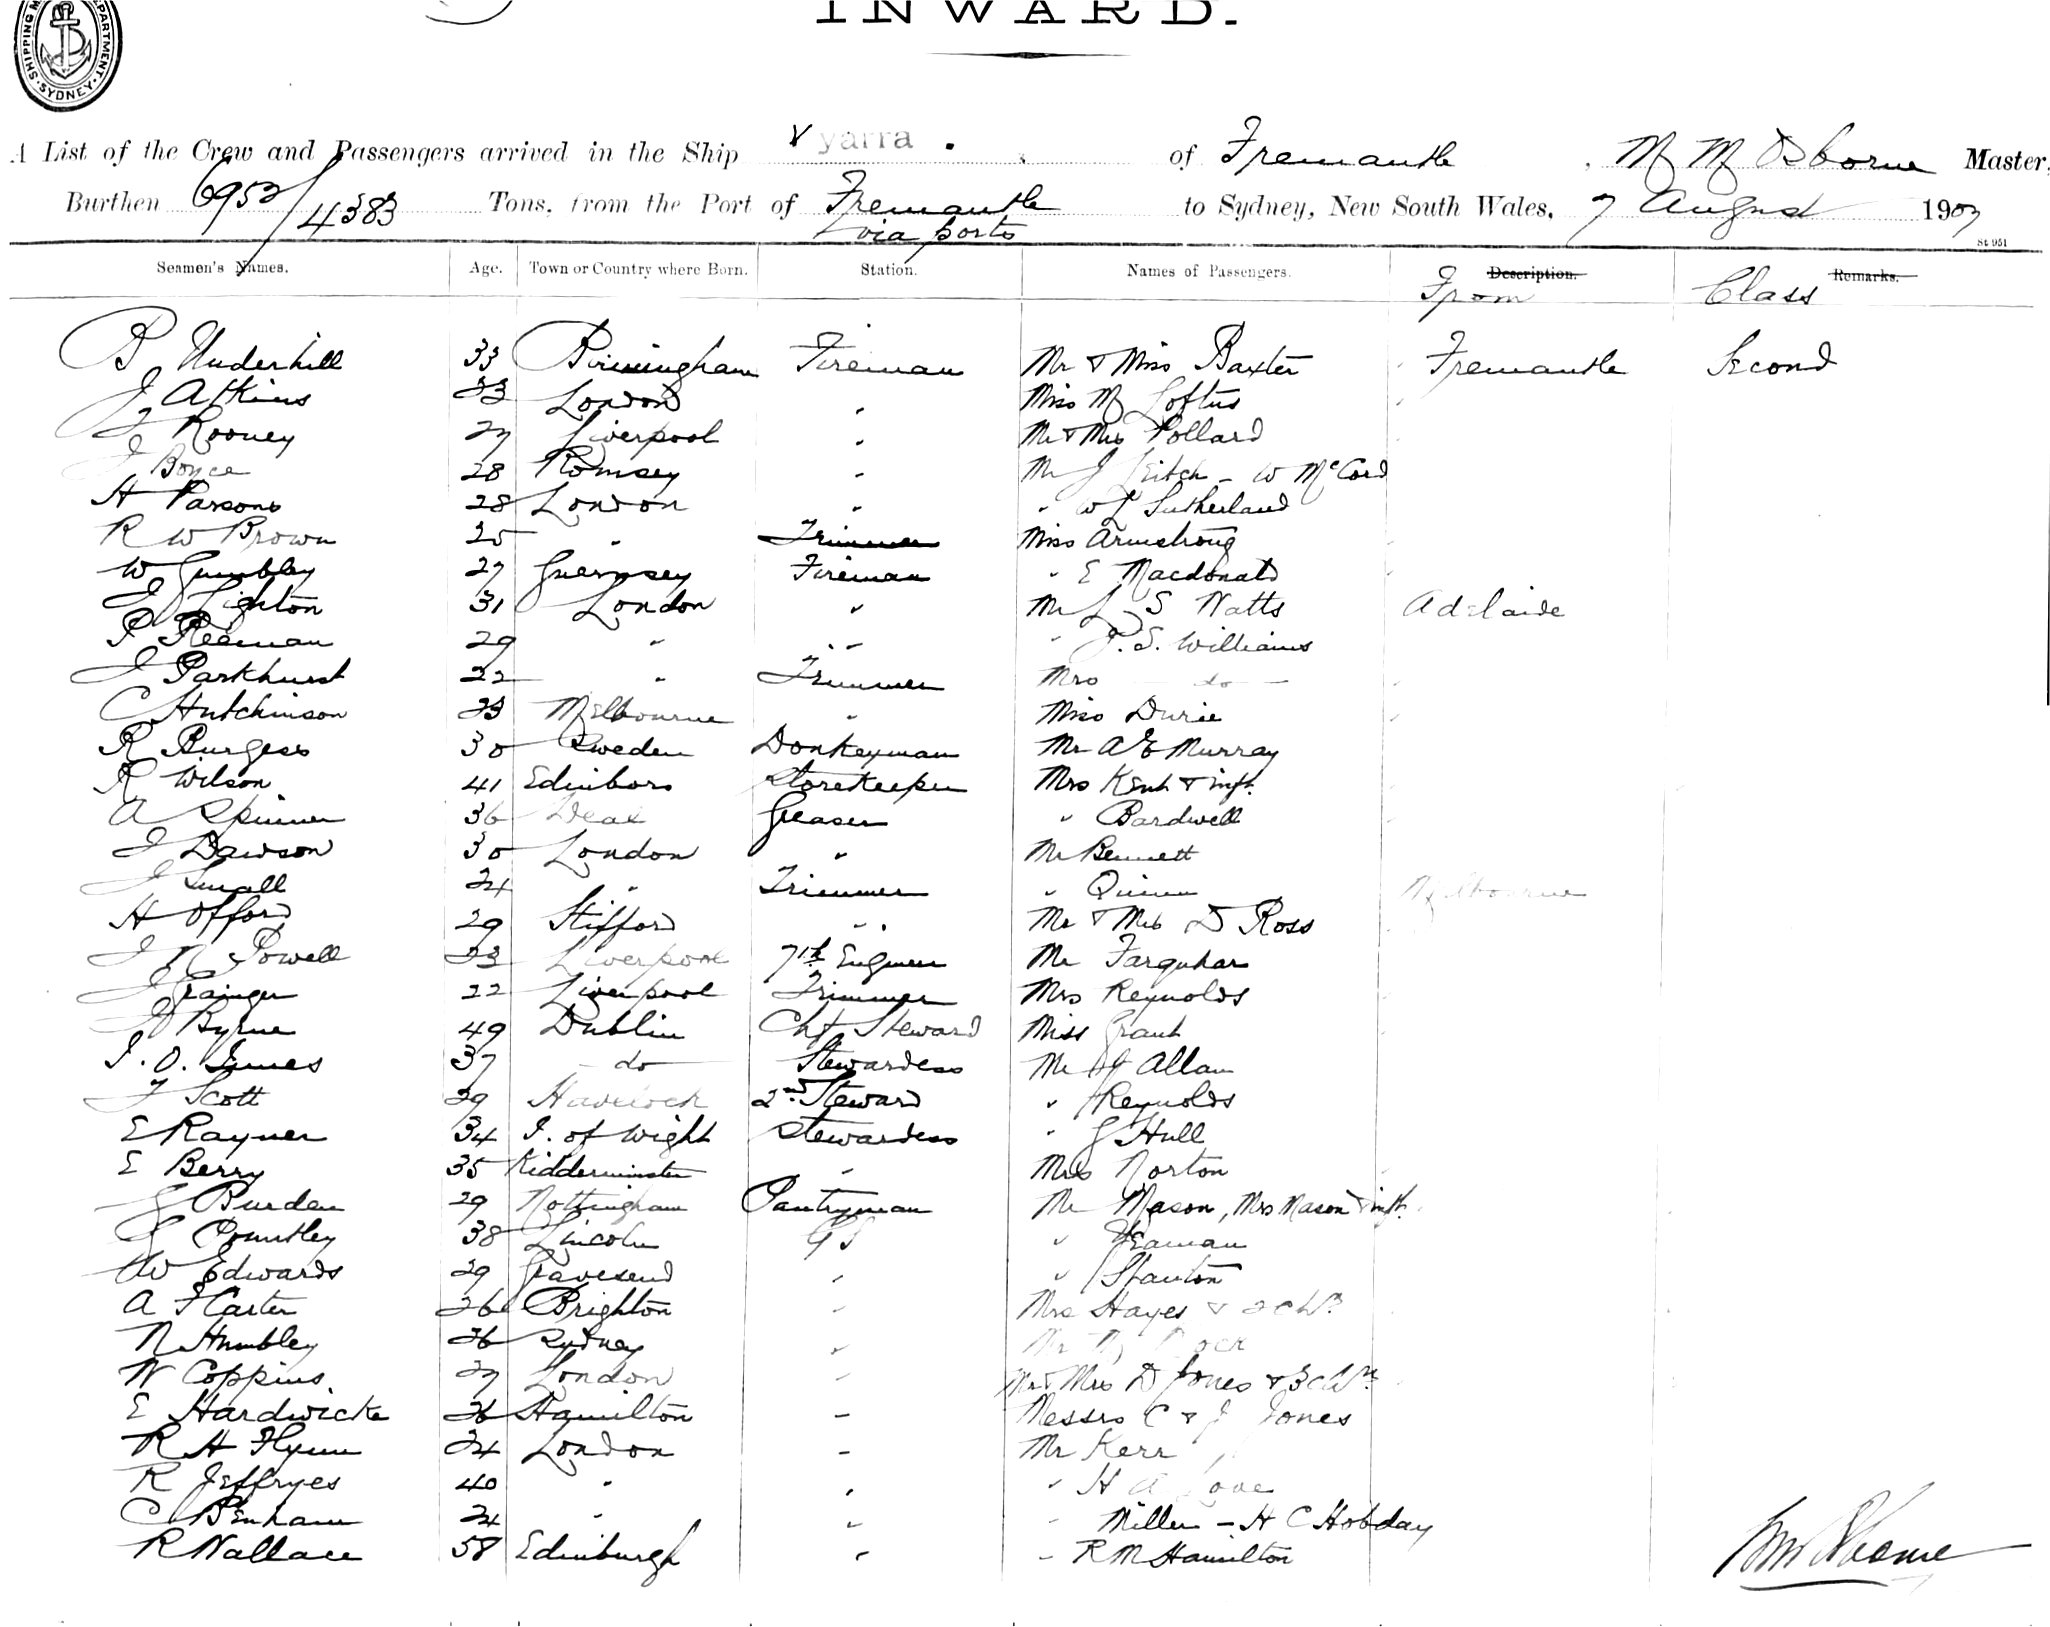 SHIPPING M DEPARTMENT SYDNEY
INWARD.
A List of the Crew and Passengers arrived in the Ship yarra of Fremantle, Osborne Master,
Burthen 6952/4383 Tons, from the Port of Fremantle to Sydney, New South Wales, 7 August 1907
via ports
St 951
Seamen's Names. Age. Town or Country where Born. Station. Names of Passengers. Description. Remarks.
From Class
B Underhill 33 Birmingham Fireman Mr & Miss Baxter Fremantle Second
J Atkins 33 London " Miss M Loftus
Rooney 27 Liverpool " Mr & Mrs Pollard
J Boyce 28 Romsey " Mr J Leitch - W McCord
H Parsons 28 London " " W Sutherland
R W Brown 25 " Trimmer Miss Armstrong
W Gumbley 27 Guernsey Fireman " E Macdonald
J Lighton 31 London " Mr L S Watts Adelaide
29 " " " P. S. Williams
J Parkhurst 22 " Trimmer Mrs - do -
C Hutchinson 23 Melbourne " Miss Durie
R Burgess 30 Sweden Donkeyman Mr A E Murray
R Wilson 41 Edinboro Storekeeper Mrs Kent & inft.
A Spinner 36 Deal Greaser " Bardwell
J Dawson 30 London " Mr Bennett
J Small 24 " Trimmer " Quinn Melbourne
H Offord 29 Stifford " Mr & Mrs D Ross
J N Powell 23 Liverpool 7th Engineer Mr Farquhar
J Grainger 22 Liverpool Trimmer Mrs Reynolds
J Byrne 49 Dublin Chf Steward Miss Grant
J. O. 37 - do - Stewardess Mr Allan
F Scott 39 Havelock 2nd Steward " Reynolds
E Rayner 34 I. of Wight Stewardess " G Hull
E Berry 35 Kidderminster " Mrs Norton
G Burden 29 Nottingham Pantryman Mr Mason, Mrs Mason & inft.
G 38 Lincoln G S " Yeaman
W Edwards 29 Gravesend " " Stanton
A F Carter 26 Brighton " Mrs Hayes & 2 chn
N Humbley 26 Sydney " Mr
W Coppins. 27 London " Mr & Mrs D Jones & 3 chn
E Hardwicke 26 Hamilton " Messrs C & J Jones
R H Flynn 24 London " Mr Kerr
R Jeffryes 40 " " " H A
C Benham 24 " " " Miller - H C Hobday
R Wallace 58 Edinburgh " " R M Hamilton